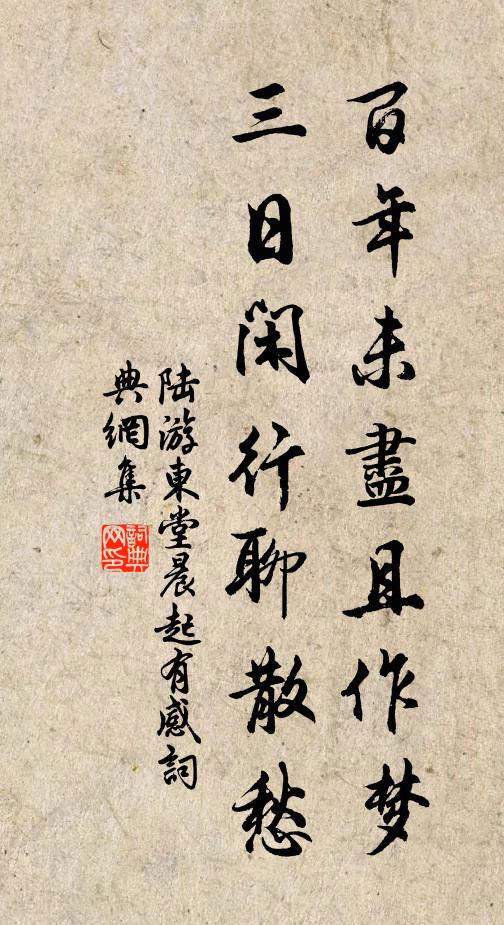 百年未盡且作梦
三日闲行聊散愁
陆游東堂晨起有感詞
典網集
詞典网印